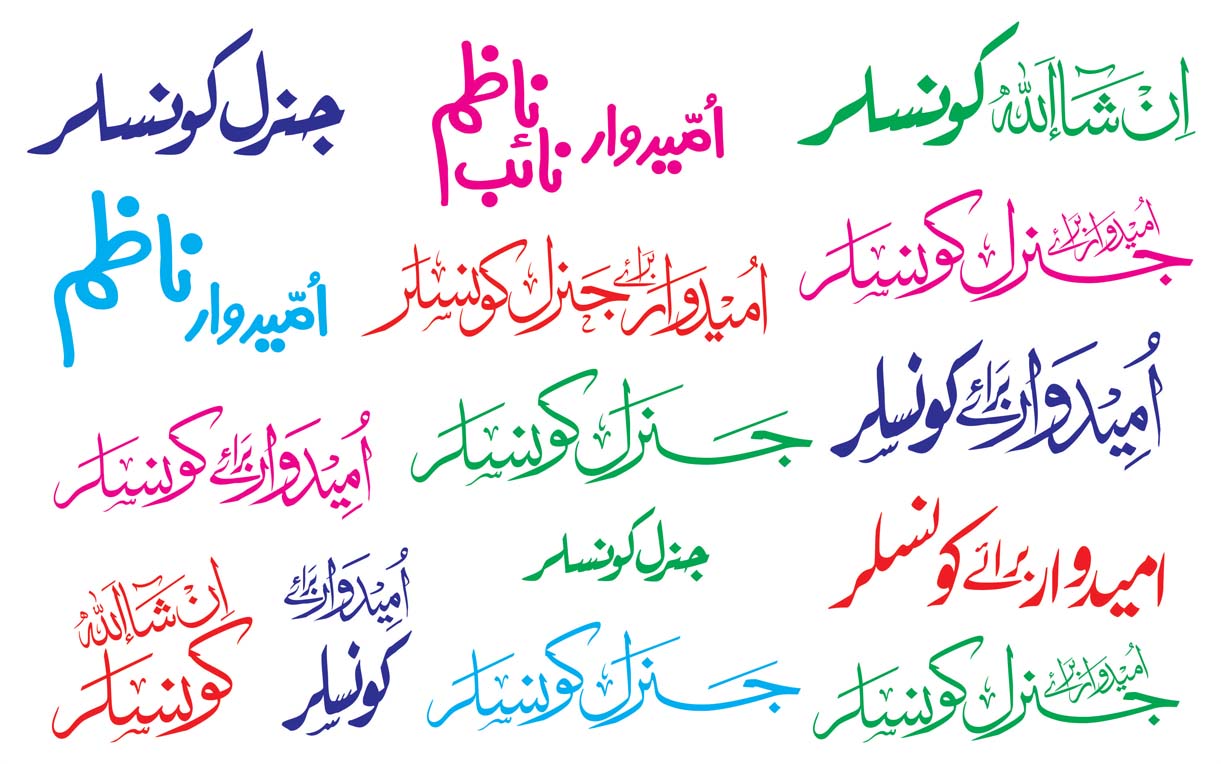 جنرل کونسلر
اُمّیدوار نائب ناظم
اِنْ شَاءَاللّٰہ کونسلر
اُمّیدوار ناظم
اُمیدوار برائے جنرل کونسلر
اُمیدوار برائے جنرل کونسلر
اُمِیدوار برَائے کونسلر
جنرل کونسلر
اُمِیدوار برَائے کونسلر
جنرل کونسلر
امیدوار برائے کونسلر
اِنْ شَاءَاللّٰہ
کونسلر
اُمِیدوار برَائے
کونسلر
جنرل کونسلر
اُمیدوار برائے جنرل کونسلر